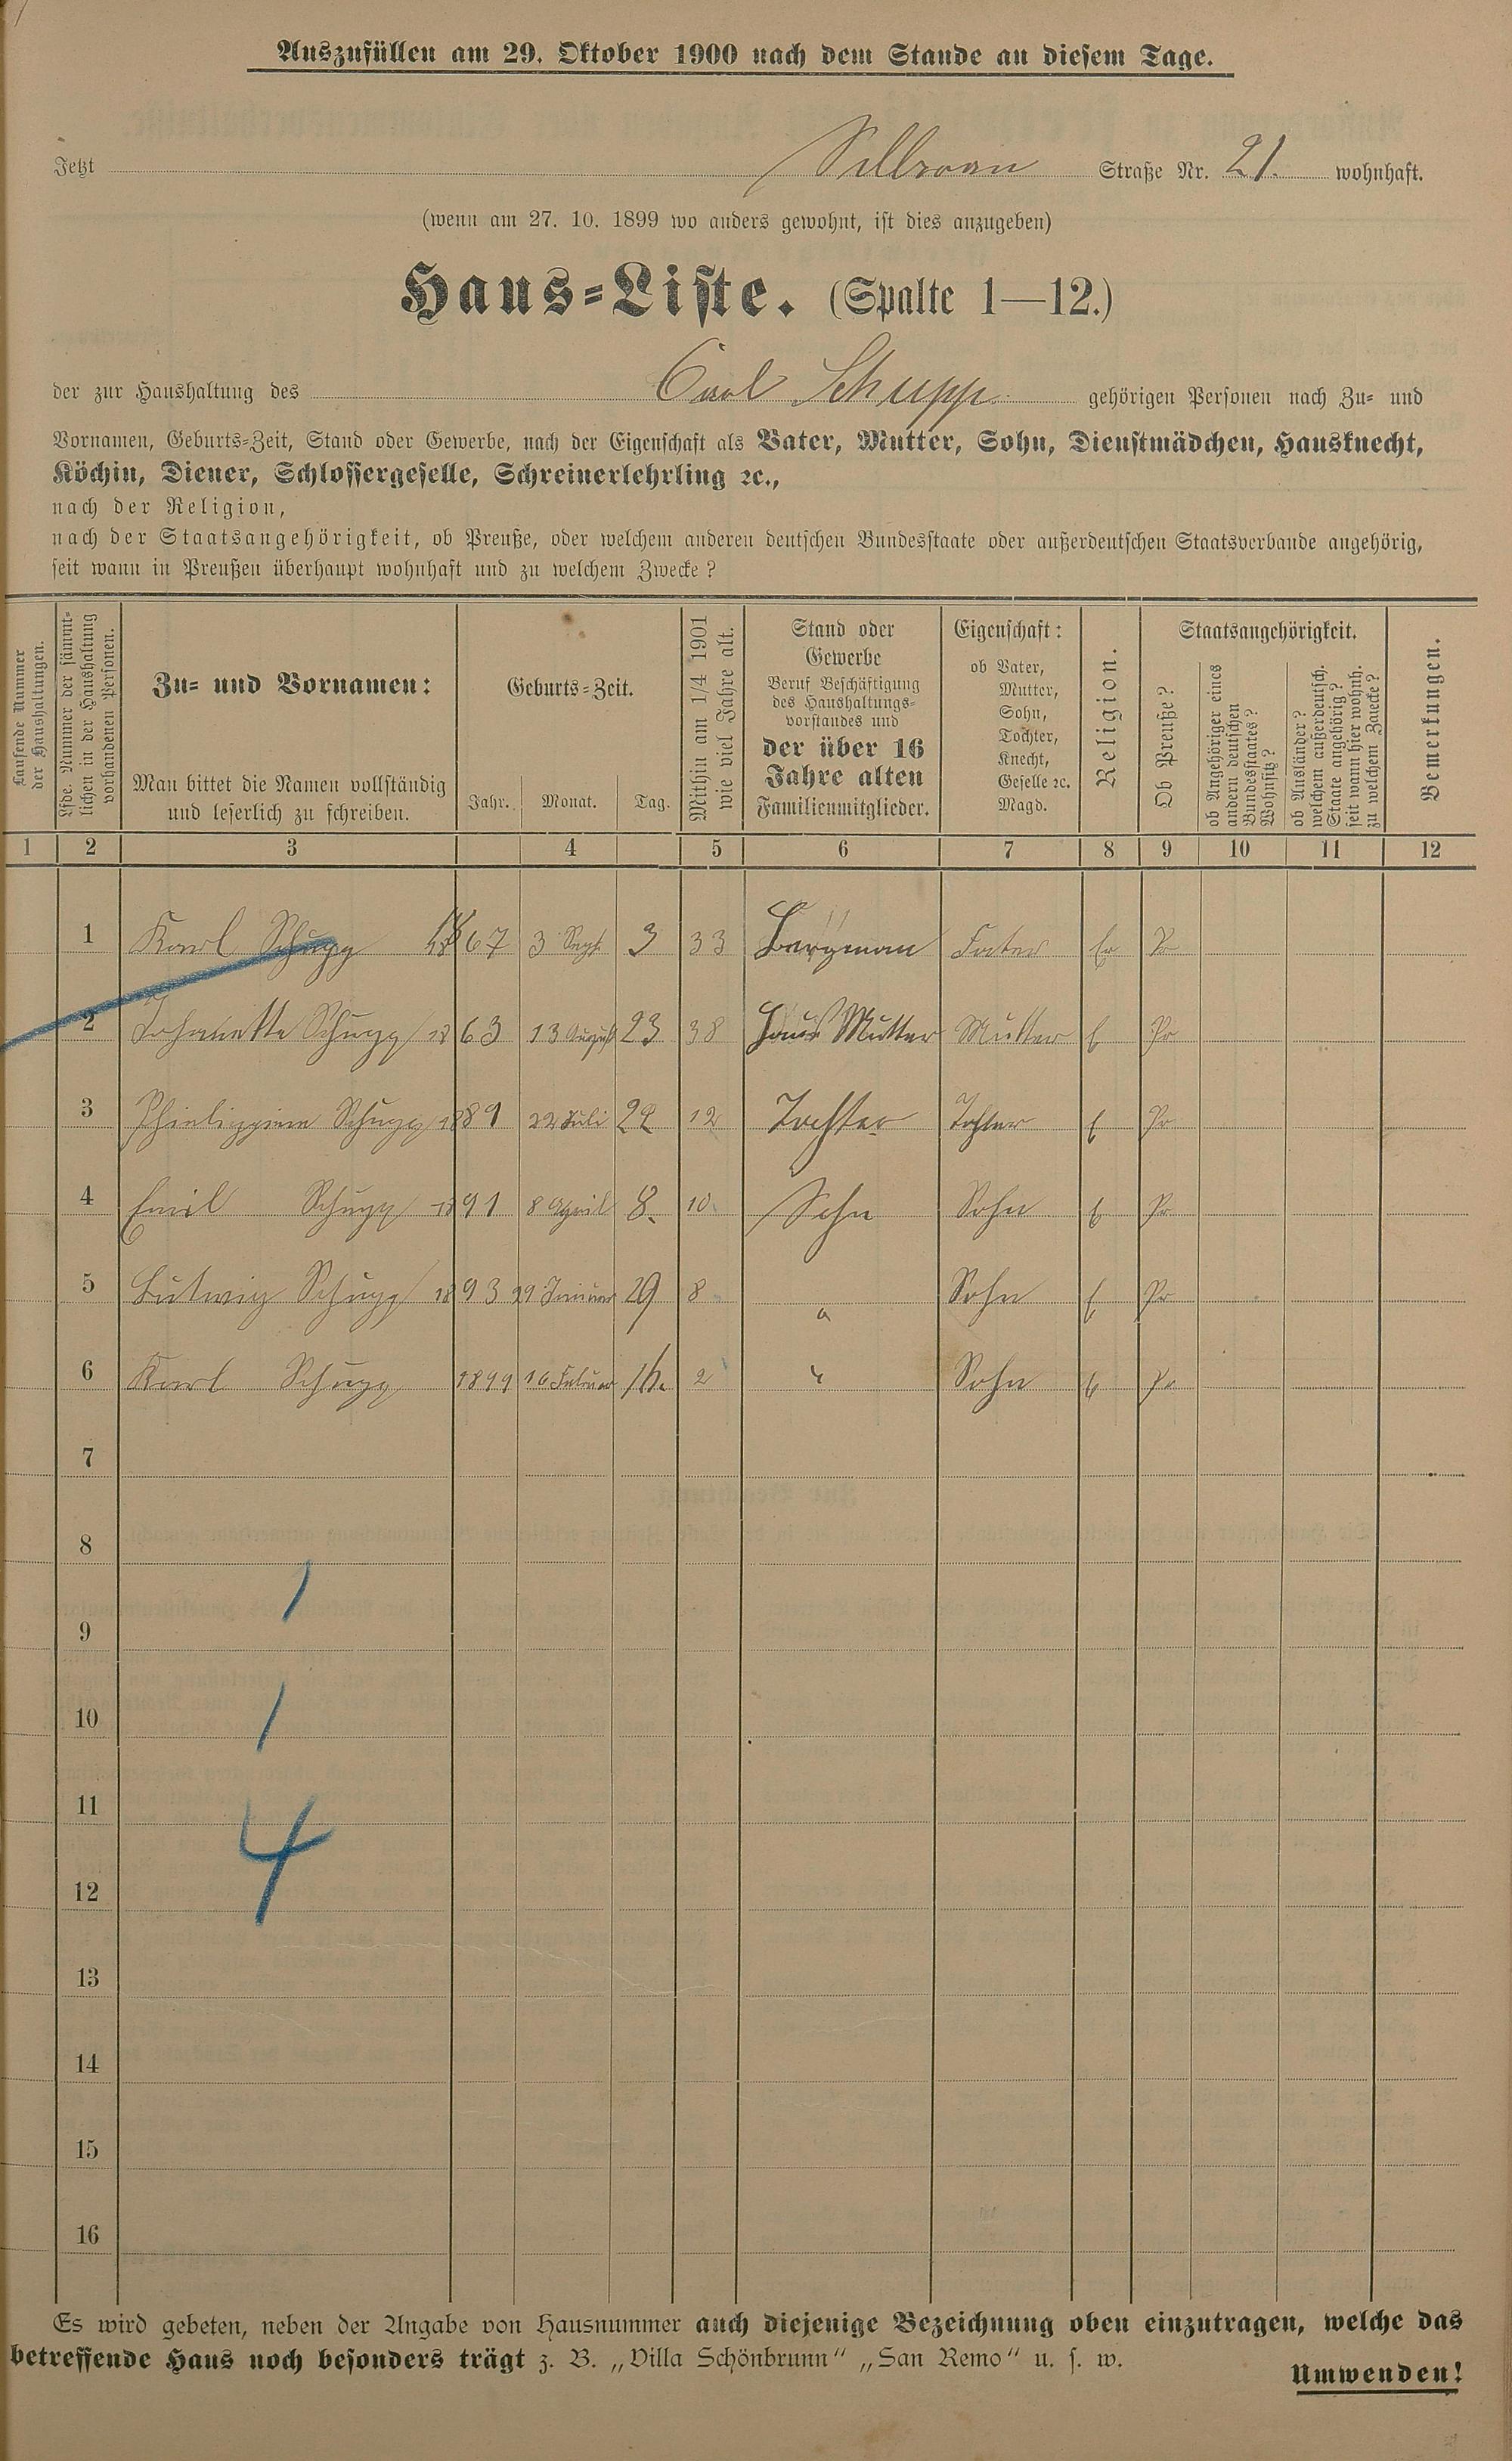 Auszufüllen am 29. Oktober 1900 nach dem Stande an diesem Tage.
Jetzt Straße Nr. 21. wohnhaft.
(wenn am 27. 10. 1899 wo anders gewohnt, ist dies anzugeben)
Haus-Liste. (Spalte 1—12.)
der zur Haushaltung des Carl Schupp gehörigen Personen nach Zu- und
Vornamen, Geburts-Zeit, Stand oder Gewerbe, nach der Eigenschaft als Vater, Mutter, Sohn, Dienstmädchen, Hausknecht,
Köchin, Diener, Schlossergeselle, Schreinerlehrling ꝛc.,
nach der Religion,
nach der Staatsangehörigkeit, ob Preuße, oder welchem anderen deutschen Bundesstaate oder außerdeutschen Staatsverbande angehörig,
seit wann in Preußen überhaupt wohnhaft und zu welchem Zwecke?
Laufende Nummer
der Haushaltungen.
Lfde. Nummer der sämmt-
lichen in der Haushaltung
vorhandenen Personen.
Zu- und Vornamen:
Man bittet die Namen vollständig
und leserlich zu schreiben.
Geburts-Zeit.
Jahr. Monat. Tag.
Mithin am 1/4 1901
wie viel Jahre alt.
Stand oder
Gewerbe
Beruf Beschäftigung
des Haushaltungs-
vorstandes und
der über 16
Jahre alten
Familienmitglieder.
Eigenschaft:
ob Vater,
Mutter,
Sohn,
Tochter,
Knecht,
Geselle ꝛc.
Magd.
Religion.
Staatsangehörigkeit.
Ob Preuße?
ob Angehöriger eines
andern deutschen
Bundesstaates?
Wohnsitz?
ob Ausländer?
welchem außerdeutsch.
Staate angehörig?
seit wann hier wohnh.
zu welchem Zwecke?
Bemerkungen.
1 2 3 4 5 6 7 8 9 10 11 12
1 Karl Schupp 1867 3 Sept. 3 33 Bergman Fater Ev Pr
2 Johanette Schupp 1863 13 August 23 38 Haus Mutter Mutter E Pr
3 Phielippine Schupp 1889 22 Juli 22 12 Tochter Tochter E Pr
4 Emil Schupp 1891 8 April 8. 10. Sohn Sohn E Pr
5 Lutwig Schupp 1893 29 Januar 29 8 " Sohn E Pr
6 Karl Schupp 1899 16 Februar 16. 2 " Sohn E Pr
7
8
1
9
10
1
11
4
12
13
14
15
16
Es wird gebeten, neben der Angabe von Hausnummer auch diejenige Bezeichnung oben einzutragen, welche das
betreffende Haus noch besonders trägt z. B. „Villa Schönbrunn“ „San Remo“ u. s. w.
Umwenden!